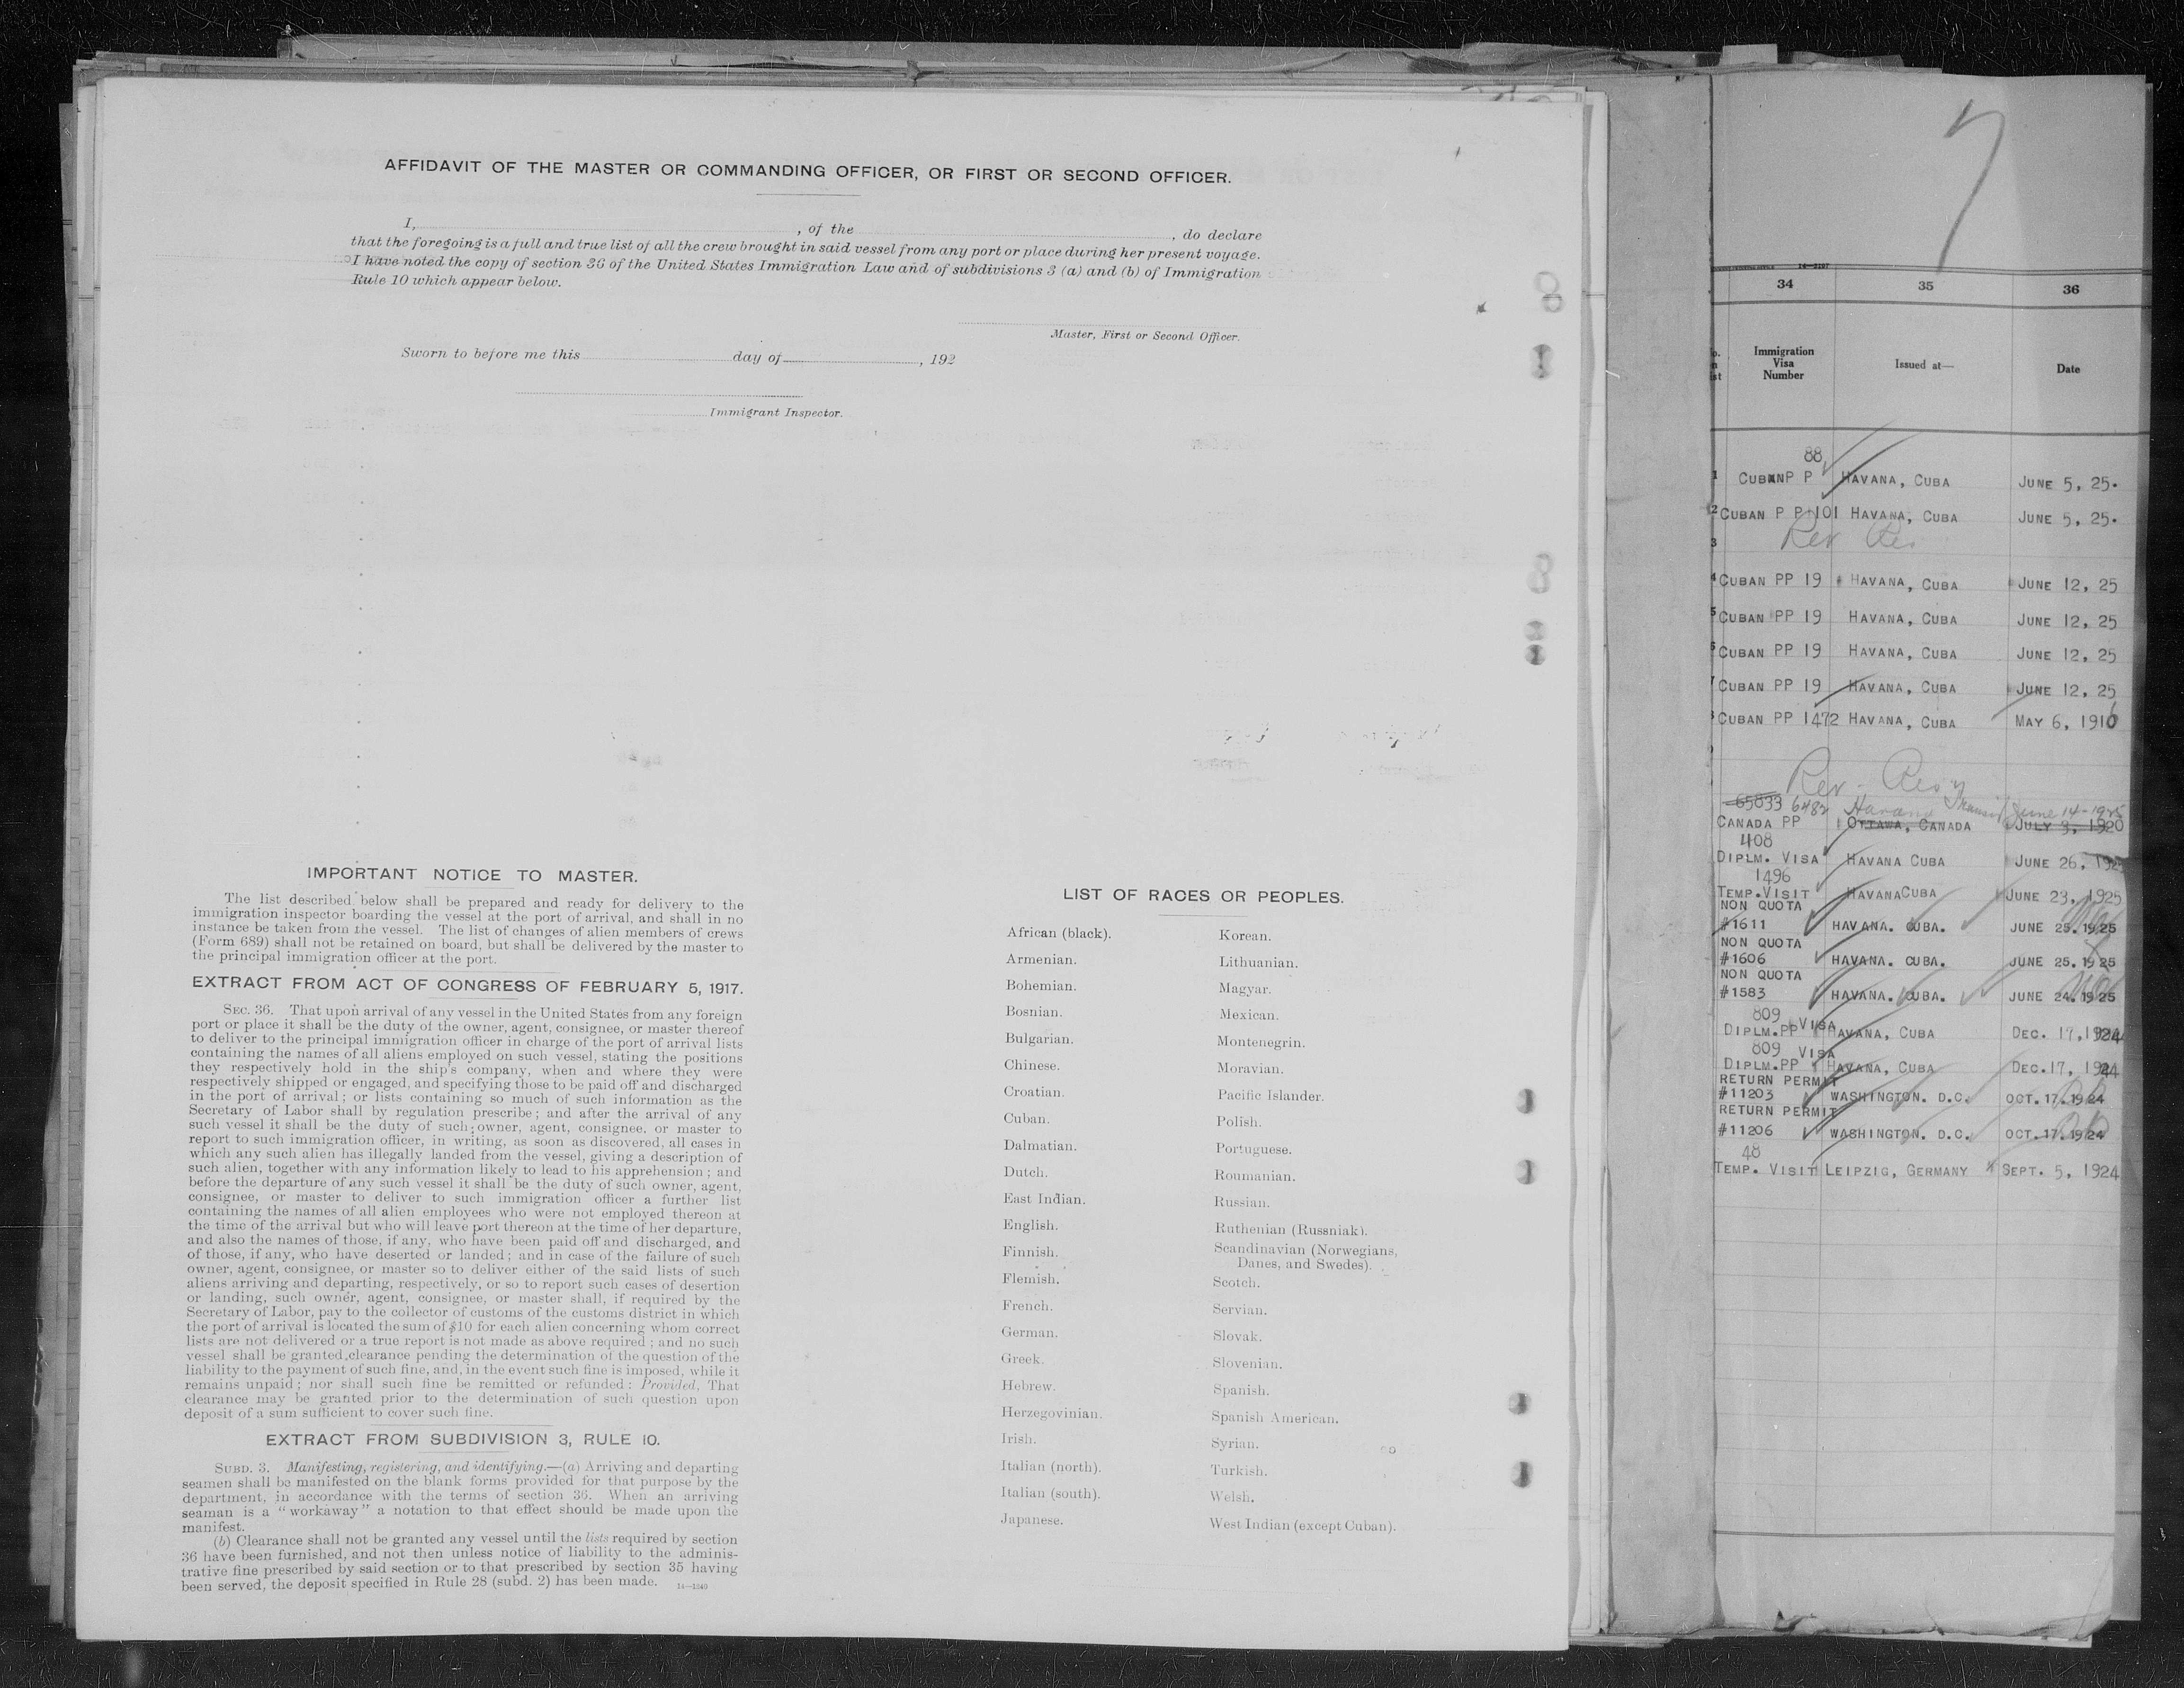 AFFIDAVIT OF THE MASTER OR COMMANDING OFFICER, OR FIRST OR SECOND OFFICER.
I, , of the , do declare
that the foregoing is a full and true list of all the crew brought in said vessel from any port or place during her present voyage.
I have noted the copy of section 36 of the United States Immigration Law and of subdivisions 3 (a) and (b) of Immigration
Rule 10 which appear below.
Master, First or Second Officer.
Sworn to before me this day of , 192
Immigrant Inspector.
IMPORTANT NOTICE TO MASTER.
The list described below shall be prepared and ready for delivery to the
immigration inspector boarding the vessel at the port of arrival, and shall in no
instance be taken from the vessel. The list of changes of alien members of crews
(Form 689) shall not be retained on board, but shall be delivered by the master to
the principal immigration officer at the port.
EXTRACT FROM ACT OF CONGRESS OF FEBRUARY 5, 1917.
SEC. 36. That upon arrival of any vessel in the United States from any foreign
port or place it shall be the duty of the owner, agent, consignee, or master thereof
to deliver to the principal immigration officer in charge of the port of arrival lists
containing the names of all aliens employed on such vessel, stating the positions
they respectively hold in the ship's company, when and where they were
respectively shipped or engaged, and specifying those to be paid off and discharged
in the port of arrival; or lists containing so much of such information as the
Secretary of Labor shall by regulation prescribe; and after the arrival of any
such vessel it shall be the duty of such owner, agent, consignee, or master to
report to such immigration officer, in writing, as soon as discovered, all cases in
which any such alien has illegally landed from the vessel, giving a description of
such alien, together with any information likely to lead to his apprehension; and
before the departure of any such vessel it shall be the duty of such owner, agent,
consignee, or master to deliver to such immigration officer a further list
containing the names of all alien employees who were not employed thereon at
the time of the arrival but who will leave port thereon at the time of her departure,
and also the names of those, if any, who have been paid off and discharged, and
of those, if any, who have deserted or landed; and in case of the failure of such
owner, agent, consignee, or master so to deliver either of the said lists of such
aliens arriving and departing, respectively, or so to report such cases of desertion
or landing, such owner, agent, consignee, or master shall, if required by the
Secretary of Labor, pay to the collector of customs of the customs district in which
the port of arrival is located the sum of $10 for each alien concerning whom correct
lists are not delivered or a true report is not made as above required; and no such
vessel shall be granted clearance pending the determination of the question of the
liability to the payment of such fine, and, in the event such fine is imposed, while it
remains unpaid; nor shall such fine be remitted or refunded: Provided, That
clearance may be granted prior to the determination of such question upon
deposit of a sum sufficient to cover such fine.
EXTRACT FROM SUBDIVISION 3, RULE 10.
SUBD. 3. Manifesting, registering, and identifying.—(a) Arriving and departing
seamen shall be manifested on the blank forms provided for that purpose by the
department, in accordance with the terms of section 36. When an arriving
seaman is a "workaway" a notation to that effect should be made upon the
manifest.
(b) Clearance shall not be granted any vessel until the lists required by section
36 have been furnished, and not then unless notice of liability to the adminis-
trative fine prescribed by said section or to that prescribed by section 35 having
been served, the deposit specified in Rule 28 (subd. 2) has been made. 14—1240
LIST OF RACES OR PEOPLES.
African (black).
Armenian.
Bohemian.
Bosnian.
Bulgarian.
Chinese.
Croatian.
Cuban.
Dalmatian.
Dutch.
East Indian.
English.
Finnish.
Flemish.
French.
German.
Greek.
Hebrew.
Herzegovinian.
Irish.
Italian (north).
Italian (south).
Japanese.
Korean.
Lithuanian.
Magyar.
Mexican.
Montenegrin.
Moravian.
Pacific Islander.
Polish.
Portuguese.
Roumanian.
Russian.
Ruthenian (Russniak).
Scandinavian (Norwegians,
Danes, and Swedes).
Scotch.
Servian.
Slovak.
Slovenian.
Spanish.
Spanish American.
Syrian.
Turkish.
Welsh.
West Indian (except Cuban).
7
34 35 36
Immigration
Visa
Number
Issued at—
Date
88
1 CUBAN P P HAVANA, CUBA JUNE 5, 25.
2 CUBAN P P 101 HAVANA, CUBA JUNE 5, 25.
3 Rev Res
4 CUBAN PP 19 HAVANA, CUBA JUNE 12, 25
5 CUBAN PP 19 HAVANA, CUBA JUNE 12, 25
6 CUBAN PP 19 HAVANA, CUBA JUNE 12, 25
7 CUBAN PP 19 HAVANA, CUBA JUNE 12, 25
CUBAN PP 1472 HAVANA, CUBA MAY 6, 1916
Rev. Res
65833 6482 Havana Transit June 14-1925
CANADA PP OTTAWA, CANADA JULY 3, 1920
408
DIPLM. VISA HAVANA CUBA JUNE 26, 1925
1496
TEMP. VISIT HAVANA CUBA JUNE 23, 1925
NON QUOTA
#1611 HAVANA. CUBA. JUNE 25. 1925
NON QUOTA
#1606 HAVANA. CUBA. JUNE 25. 1925
NON QUOTA
#1583 HAVANA. CUBA. JUNE 24. 1925
809
DIPLM. PP VISA HAVANA, CUBA DEC. 17, 1924
809 VISA
DIPLM. PP HAVANA, CUBA DEC. 17, 1924
RETURN PERMIT
#11203 WASHINGTON. D.C. OCT. 17. 1924
RETURN PERMIT
#11206 WASHINGTON. D.C. OCT. 17. 1924
48
TEMP. VISIT LEIPZIG, GERMANY SEPT. 5, 1924